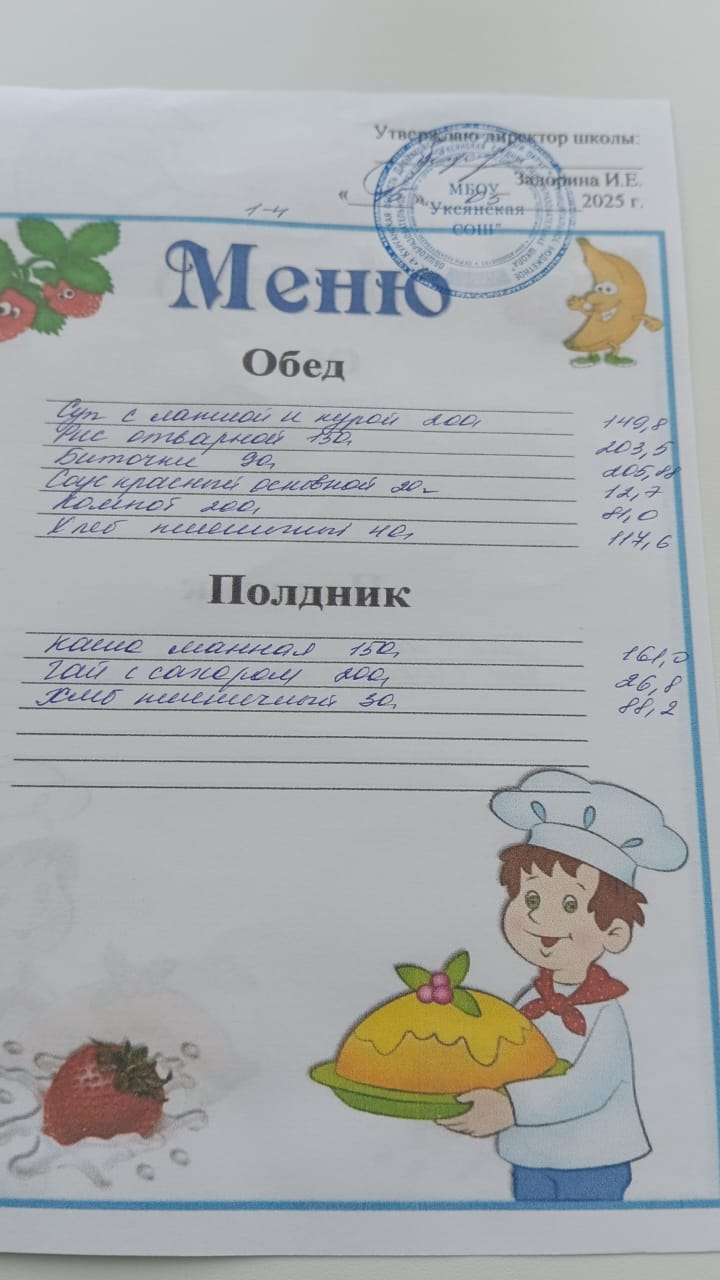 Утверждаю директор школы:
Задорина И.Е.
« » 2025 г.
МБОУ
"Уксянская
СОШ"
1-4
Меню
Обед
Суп с лапшой и курой 200г 149,8
Рис отварной 150г 203,5
Биточки 90г 205,88
Соус красный основной 20г 12,7
Компот 200г 81,0
Хлеб пшеничный 40г 117,6
Полдник
Каша манная 150г 161,0
Чай с сахаром 200г 26,8
Хлеб пшеничный 30г 88,2